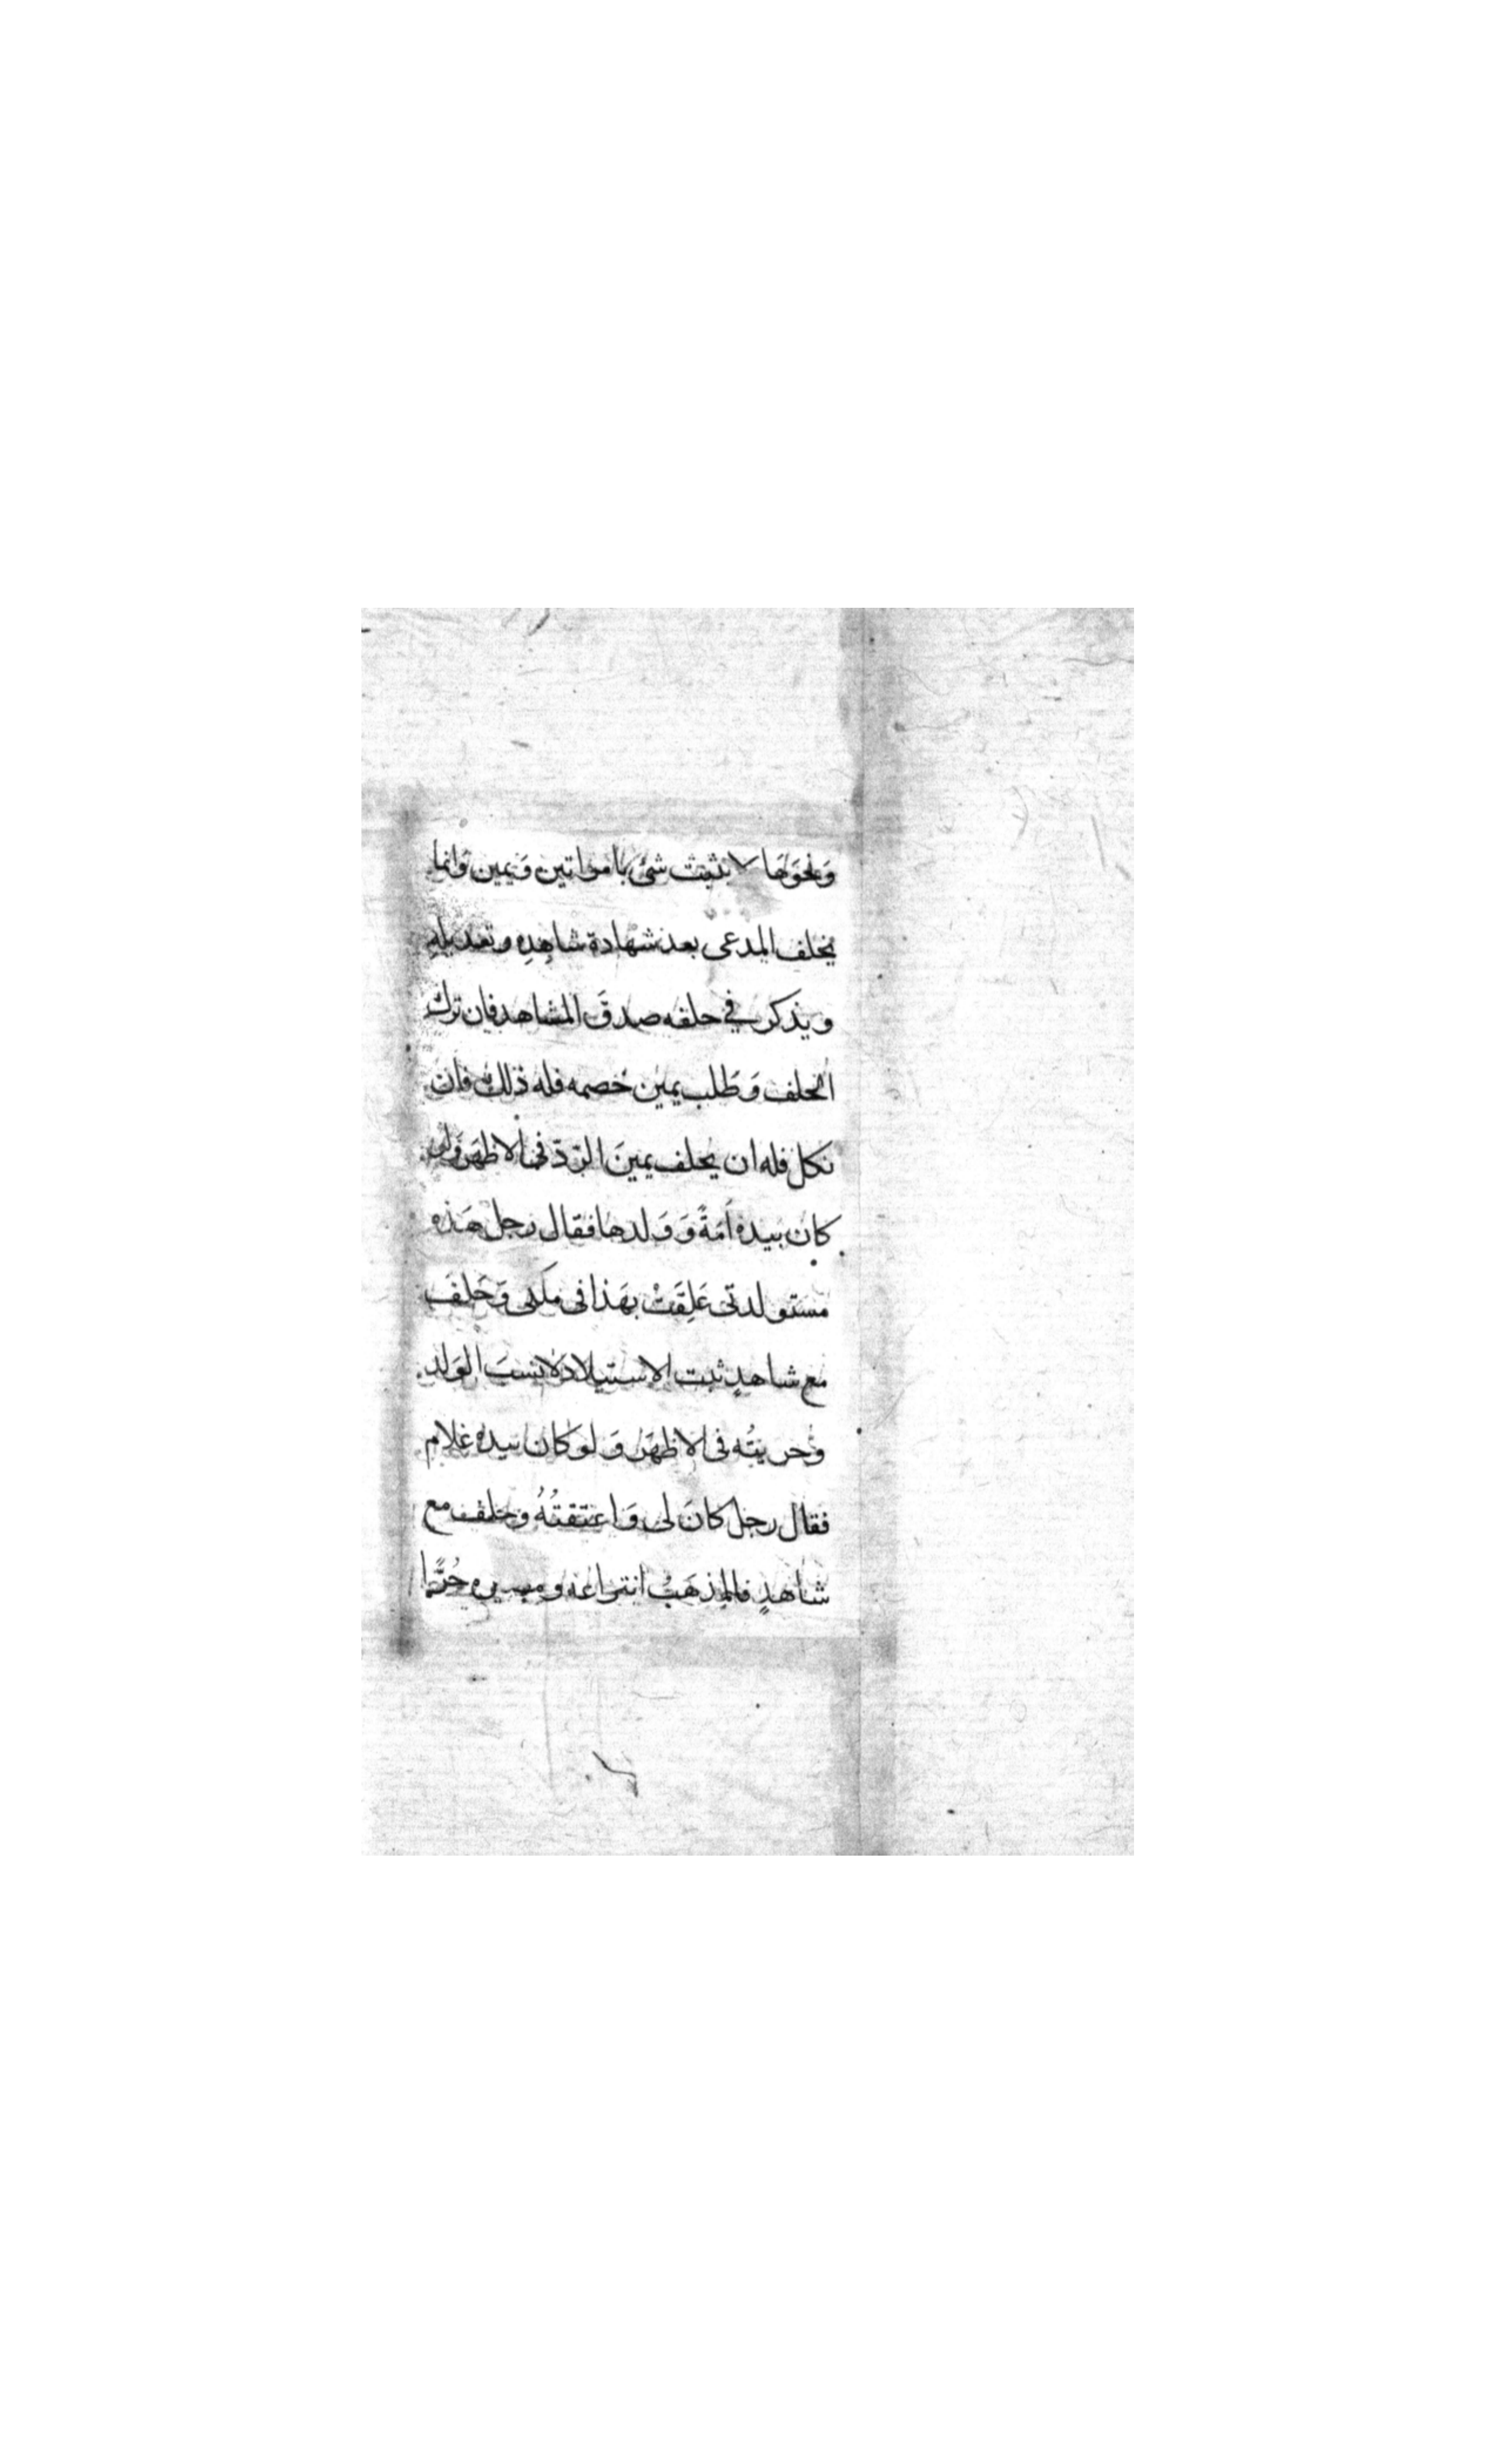 وَنحوَهَا لا يثبت شئ بامراتين وَيمين وَانما
يحلف المدعى بعد شهادة شاهدِه وتعديلهِ
ويذكر في حلفه صدقَ الشاهد فان ترك
الحلف وَطَلب يمين خصمه فله ذلك فان
نكل فله ان يحلف يمينَ الرّدّ في الاظهَر وَلو
كان بيده اَمَةً وَوَلدها فقال رجل هَذه
مستولدتى عَلِقَتْ بهَذا فى ملكى وَحَلفَ
مع شاهدٍ ثبت الاستيلاد لا نسبَ الوَلد
وَحريتُه فى الاظهَر وَلو كان بيده غلام
فقال رجل كانَ لى وَاعتقتُهُ وحلف مع
شاهدٍ فالمذهَبُ انتزاعه ومصيره حُرًّا